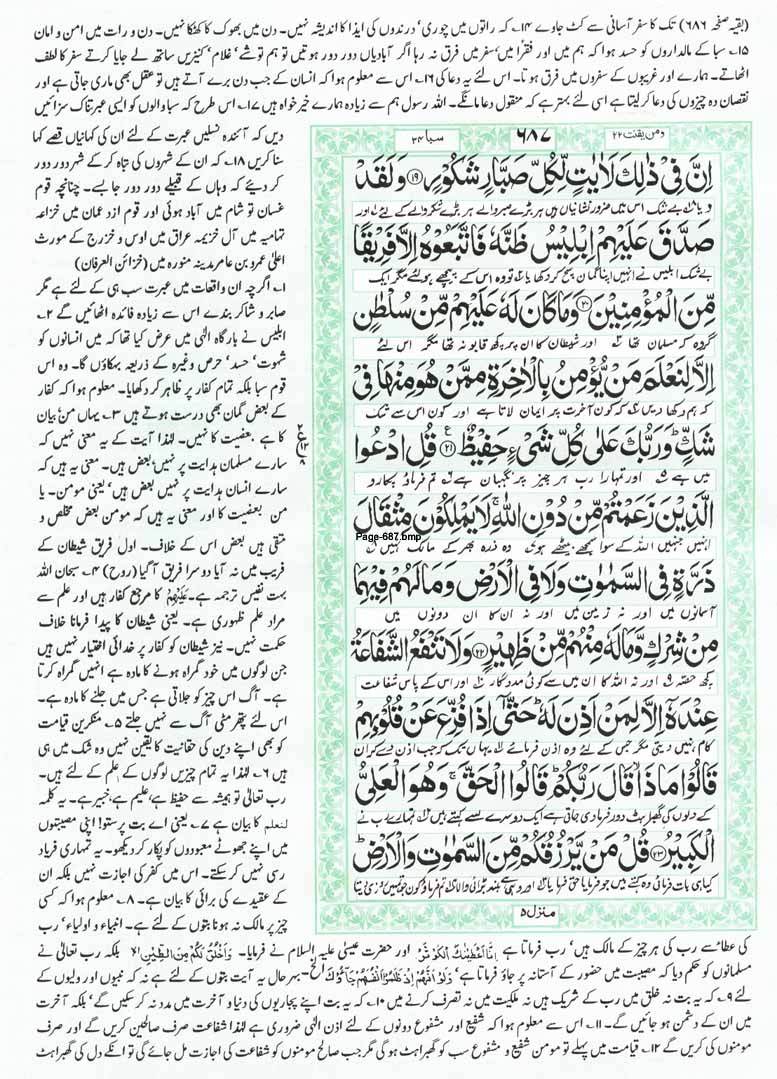 (بقیہ صفحہ ۶۸۶) تک کا سفر آسانی سے کٹ جاوے ۱۴۔ کہ راتوں میں چوری' درندوں کی ایذا کا اندیشہ نہیں۔ دن میں بھوک کا کھٹکا نہیں۔ دن و رات میں امن و امان
۱۵۔ سبا کے مالداروں کو حسد ہوا کہ ہم میں اور فقرا میں' سفر میں فرق نہ رہا اگر آبادیاں دور دور ہوتیں تو ہم توشے' غلام' کنیزیں ساتھ لے جایا کرتے سفر کا لطف
اٹھاتے۔ ہمارے اور غریبوں کے سفروں میں فرق ہوتا۔ اس لئے یہ دعا کی ۱۶۔ اس سے معلوم ہوا کہ انسان کے جب دن برے آتے ہیں تو عقل بھی ماری جاتی ہے اور
نقصان دہ چیزوں کی دعا کر لیتا ہے اسی لئے بہتر ہے کہ منقول دعا مانگے۔ اللہ رسول ہم سے زیادہ ہمارے خیر خواہ ہیں ۱۷۔ اس طرح کہ سبا والوں کو ایسی عبرتناک سزائیں
دیں کہ آئندہ نسلیں عبرت کے لئے ان کی کہانیاں قصے کہا
سنا کریں ۱۸۔ کہ ان کے شہروں کی تباہ کر کے شہر دور دور
کر دیئے کہ وہاں کے قبیلے دور دور جا بسے۔ چنانچہ قوم
غسان تو شام میں آباد ہوئی اور قوم ازد عمان میں خزاعہ
تہامیہ میں آل خزیمہ عراق میں اوس و خزرج کے مورث
اعلیٰ عمرو بن عامر مدینہ منورہ میں (خزائن العرفان)
۱۔ اگرچہ ان واقعات میں عبرت سب ہی کے لئے ہے مگر
صابر و شاکر بندے اس سے زیادہ فائدہ اٹھائیں گے ۲۔
ابلیس نے بارگاہ الٰہی میں عرض کیا تھا کہ میں انسانوں کو
شہوت' حسد' حرص وغیرہ کے ذریعہ بہکاؤں گا۔ وہ اس
قوم سبا بلکہ تمام کفار پر ظاہر کر دکھایا۔ معلوم ہوا کہ کفار
کے بعض گمان بھی درست ہوتے ہیں ۳۔ یہاں من' بیان
کا ہے۔ بعضیت کا نہیں۔ لہٰذا آیت کے یہ معنی نہیں کہ
سارے مسلمان ہدایت پر نہیں' بعض ہیں۔ معنی یہ ہیں کہ
سارے انسان ہدایت پر نہیں بعض ہیں' یعنی مومن۔ یا
من بعضیت کا اور معنی یہ ہیں کہ مومن بعض مخلص و
متقی ہیں بعض اس کے خلاف۔ اول فریق شیطان کے
فریب میں نہ آیا دوسرا فریق آگیا (روح) ۴۔ سبحان اللہ
بہت نفیس ترجمہ ہے۔ عَلَیْهِمْ کا مرجع کفار ہیں اور علم سے
مراد علم ظہوری ہے۔ یعنی شیطان کا پیدا فرمانا خلاف
حکمت نہیں۔ نیز شیطان کو کفار پر خدائی اختیار نہیں ہیں
جن لوگوں میں خود گمراہ ہونے کا مادہ ہے انہیں گمراہ کرتا
ہے۔ آگ اس چیز کو جلاتی ہے جس میں جلنے کا مادہ ہے۔
اس لئے پتھر مٹی آگ سے نہیں جلتے ۵۔ منکرین قیامت
کو بھی اپنے دین کی حقانیت کا یقین نہیں وہ شک میں ہی
ہیں ۶۔ لہٰذا یہ تمام چیزیں لوگوں کے علم کے لئے ہیں۔
رب تعالیٰ تو ہمیشہ سے حفیظ ہے' علیم ہے' خبیر ہے۔ یہ کلمہ
لنعلم کا بیان ہے ۷۔ یعنی اے بت پرستو! اپنی مصیبتوں
میں اپنے جھوٹے معبودوں کو پکار کر دیکھو۔ یہ تمہاری فریاد
رسی نہیں کر سکتے۔ اس میں کفر کی اجازت نہیں بلکہ ان
کے عقیدے کی برائی کا بیان ہے۔ ۸۔ معلوم ہوا کہ کسی
چیز پر مالک نہ ہونا بتوں کے لئے ہے۔ انبیاء و اولیاء' رب
ومن یقنت ۲۲
۶۸۷
سبا ۳۴
اِنَّ فِیْ ذٰلِكَ لَاٰیٰتٍ لِّكُلِّ صَبَّارٍ شَكُوْرٍ ﴿۱۹﴾ وَلَقَدْ
بے شک اس میں ضرور نشانیاں ہیں ہر بڑے صبر والے ہر بڑے شکر والے کے لئے اور
صَدَّقَ عَلَیْهِمْ اِبْلِیْسُ ظَنَّهٗ فَاتَّبَعُوْهُ اِلَّا فَرِیْقًا
بے شک ابلیس نے انہیں اپنا گمان سچ کر دکھایا تو وہ اس کے پیچھے ہو لئے مگر ایک
مِّنَ الْمُؤْمِنِیْنَ ﴿۲۰﴾ وَمَا كَانَ لَهٗ عَلَیْهِمْ مِّنْ سُلْطٰنٍ
گروہ کہ مسلمان تھا اور شیطان کا ان پر کچھ قابو نہ تھا مگر اس لئے
اِلَّا لِنَعْلَمَ مَنْ یُّؤْمِنُ بِالْاٰخِرَةِ مِمَّنْ هُوَ مِنْهَا فِیْ
کہ ہم دکھا دیں کہ کون آخرت پر ایمان لاتا ہے اور کون اس سے شک
شَكٍّ ؕ وَرَبُّكَ عَلٰی كُلِّ شَیْءٍ حَفِیْظٌ ﴿۲۱﴾ قُلِ ادْعُوا
میں ہے اور تمہارا رب ہر چیز پر نگہبان ہے تم فرماؤ پکارو
الَّذِیْنَ زَعَمْتُمْ مِّنْ دُوْنِ اللّٰهِ ۚ لَا یَمْلِكُوْنَ مِثْقَالَ
Page-687.bmp
انہیں جنہیں اللہ کے سوا سمجھے بیٹھے ہو وہ ذرہ بھر کے مالک نہیں
ذَرَّةٍ فِی السَّمٰوٰتِ وَلَا فِی الْاَرْضِ وَمَا لَهُمْ فِیْهِمَا
آسمانوں میں اور نہ زمین میں اور نہ ان کا ان دونوں میں
مِنْ شِرْكٍ وَّمَا لَهٗ مِنْهُمْ مِّنْ ظَهِیْرٍ ﴿۲۲﴾ وَلَا تَنْفَعُ الشَّفَاعَةُ
کچھ حصہ اور نہ اللہ کا ان میں سے کوئی مددگار اور اس کے پاس شفاعت
عِنْدَهٗۤ اِلَّا لِمَنْ اَذِنَ لَهٗ ؕ حَتّٰۤی اِذَا فُزِّعَ عَنْ قُلُوْبِهِمْ
کام نہیں دیتی مگر جس کے لئے وہ اذن فرمائے یہاں تک کہ جب اذن دے کر ان
قَالُوْا مَاذَا ۙ قَالَ رَبُّكُمْ ؕ قَالُوا الْحَقَّ ۚ وَهُوَ الْعَلِیُّ
کے دلوں کی گھبراہٹ دور فرما دی جاتی ہے ایک دوسرے سے کہتے ہیں تمہارے رب نے
الْكَبِیْرُ ﴿۲۳﴾ قُلْ مَنْ یَّرْزُقُكُمْ مِّنَ السَّمٰوٰتِ وَالْاَرْضِ ؕ
کیا ہی بات فرمائی وہ کہتے ہیں جو فرمایا حق فرمایا اور وہی ہے بلند بڑائی والا تم فرماؤ کون جو تمہیں روزی دیتا
منزل ۵
کی عطا سے رب کی ہر چیز کے مالک ہیں' رب فرماتا ہے اِنَّاۤ اَعْطَیْنٰكَ الْكَوْثَرَ اور حضرت عیسیٰ علیہ السلام نے فرمایا۔ وَاَخْلُقُ لَكُمْ مِّنَ الطِّیْنِ بلکہ رب تعالیٰ نے
مسلمانوں کو حکم دیا کہ مصیبت میں حضور کے آستانہ پر جاؤ فرماتا ہے' وَلَوْ اَنَّهُمْ اِذْ ظَّلَمُوْۤا اَنْفُسَهُمْ جَآءُوْكَ الخ۔ بہرحال یہ آیت بتوں کے لئے ہے نہ کہ نبیوں اور ولیوں کے
لئے ۹۔ کہ یہ بت نہ خلق میں رب کے شریک ہیں نہ ملکیت میں نہ تصرف کرنے میں ۱۰۔ کہ یہ بت اپنے پجاریوں کی دنیا و آخرت میں مدد نہ کر سکیں گے' بلکہ آخرت
میں ان کے دشمن ہو جائیں گے۔ ۱۱۔ اس سے معلوم ہوا کہ شفیع اور مشفوع دونوں کے لئے اذن الٰہی ضروری ہے لہٰذا شفاعت صرف صالحین کریں گے اور صرف
مومنوں کی کریں گے ۱۲۔ قیامت میں پہلے تو مومن شفیع و مشفوع سب کو گھبراہٹ ہو گی مگر جب صالح مومنوں کو شفاعت کی اجازت مل جائے گی تو انکے دل کی گھبراہٹ